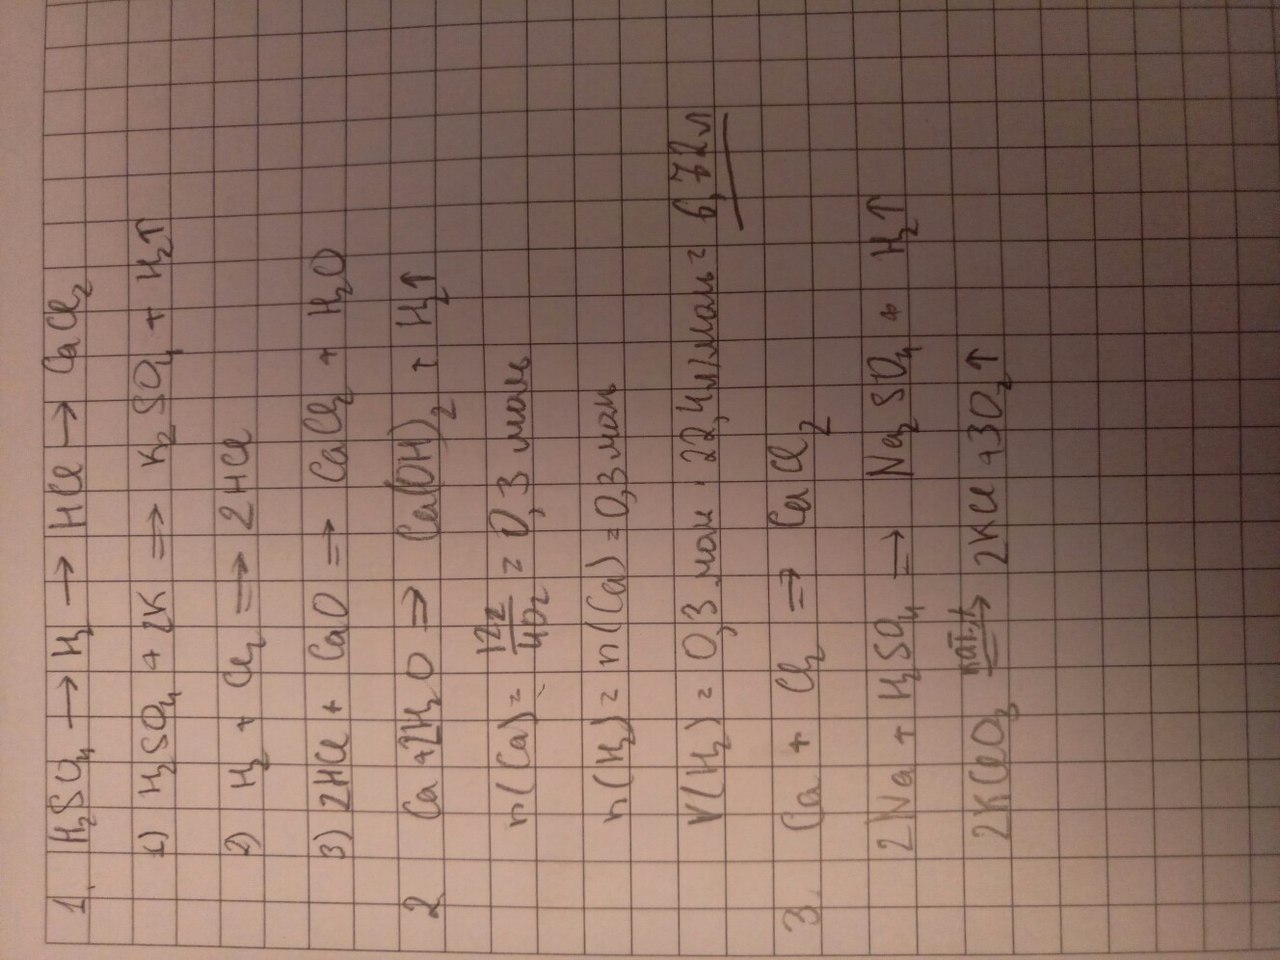 1. H₂SO₄ → H₂ → HCl → CaCl₂
1) H₂SO₄ + 2K ⇒ K₂SO₄ + H₂↑
2) H₂ + Cl₂ ⇒ 2HCl
3) 2HCl + CaO ⇒ CaCl₂ + H₂O
2 Ca + 2H₂O ⇒ Ca(OH)₂ + H₂↑
n(Ca) = 12г/40г = 0,3 моль
n(H₂) = n(Ca) = 0,3 моль
V(H₂) = 0,3 моль · 22,4 л/моль = 6,72л
3. Ca + Cl₂ ⇒ CaCl₂
2Na + H₂SO₄ → Na₂SO₄ + H₂↑
2KClO₃ → 2KCl + 3O₂↑